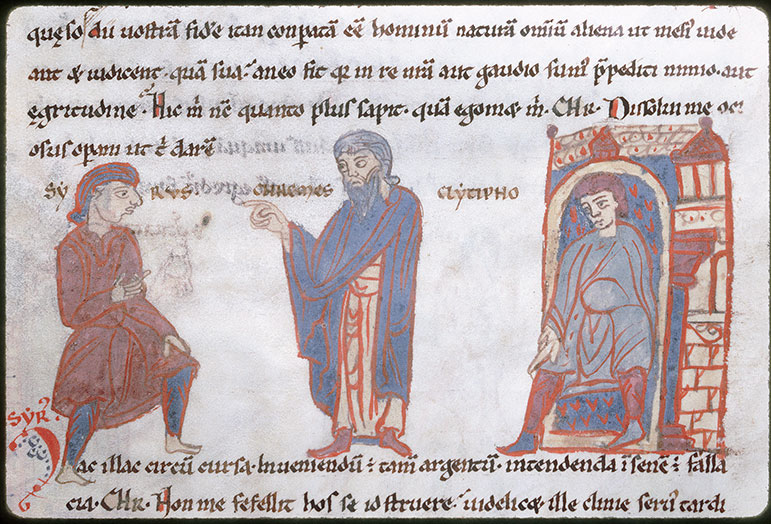 quęso diu vostrã fide itan conparatã eẽ hominũ naturã omniũ aliena ut meli᷒ uide
ant & iudicent · quã sua · aneo fit qr in re nrã aut gaudio sum᷒ p̃pediti nimio · aut
egritudine · Hic m̃ nc̃ quanto plus sapit · quã egomæ m̃ · CHR · Dissolui me oc
osus operã ut t̃ darẽ
SY RUS CHREMES CLYTIPHO
SYR᷒
Hac illac circũ cursa · Inveniendũ ÷ tam̃ argentũ · intendenda ĩ senẽ ÷ falla
cia · CHR · Non me fefellit hos se id struere · uidelicæ ille clinie seru᷒ tardi